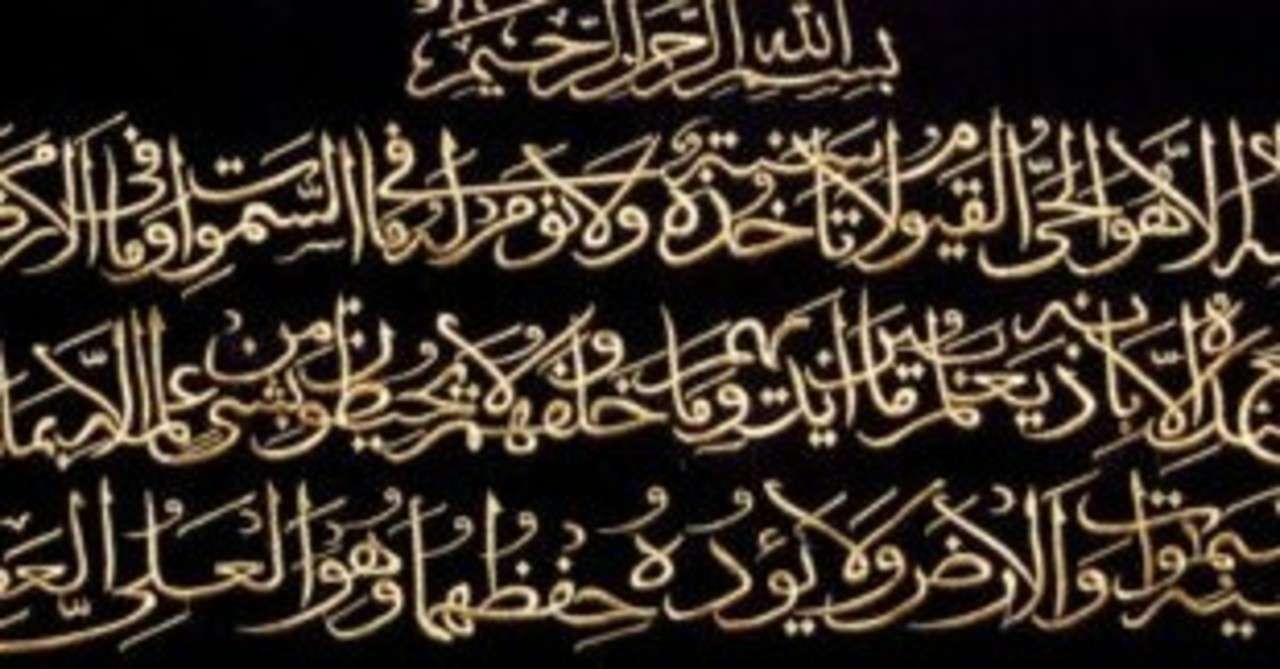 بسم الله الرحمن الرحيم
لا هو الحي القيوم لا تأخذه سنة ولا نوم له ما في السموات وما في الارض
عنده الا باذنه يعلم ما بين ايديهم وما خلفهم ولا يحيطون بشيء من علمه الا بما
السموات والارض ولا يؤده حفظهما وهو العلي